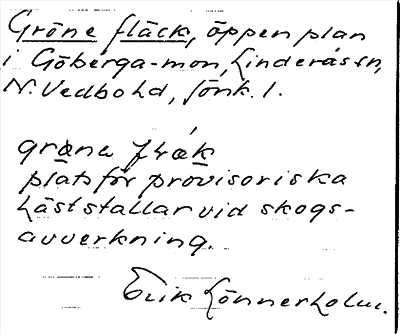 Gröne fläck, öppen plan
i Göberga-mon, Linderås sn,
N. Vedbo hd, Jönk. l.
gräna flæk
plats för provisoriska
häststallar vid skogs-
avverkning.
Erik Lönnerholm.